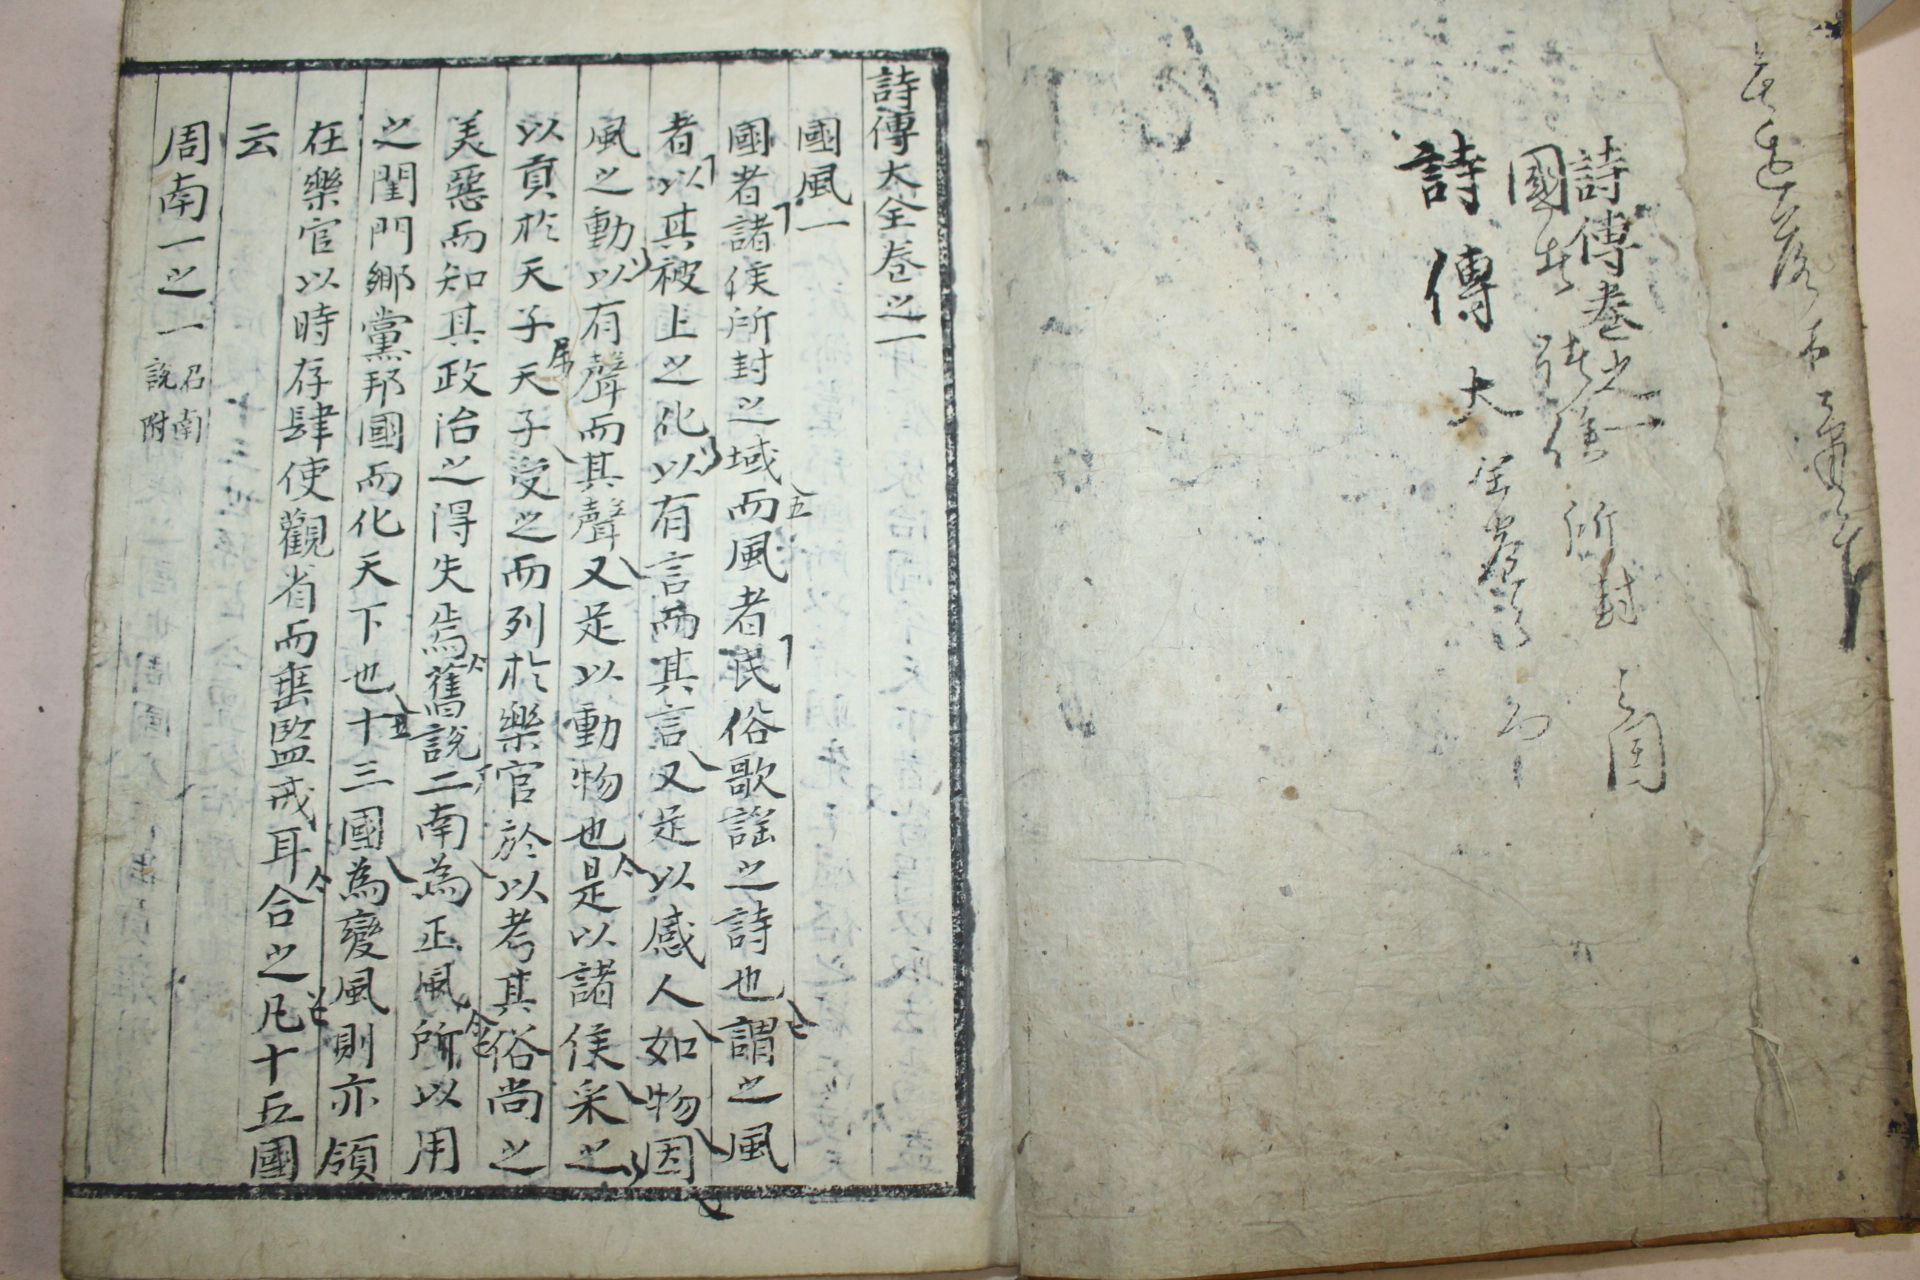 詩傳卷之一
國者 諸侯 所封 之國
詩傳大
詩傳大全卷之一
國風一
國者諸侯所封之域而風者民俗歌謠之詩也謂之風
者以其被上之化以有言而其言又足以感人如物因
風之動以有聲而其聲又足以動物也是以諸侯采之
以貢於天子天子受之而列於樂官於以考其俗尚之
美惡而知其政治之得失焉舊說二南為正風所以用
之閨門鄉黨邦國而化天下也十三國為變風則亦領
在樂官以時存肆使觀省而垂監戒耳合之凡十五國
云
周南一之一 召南說附